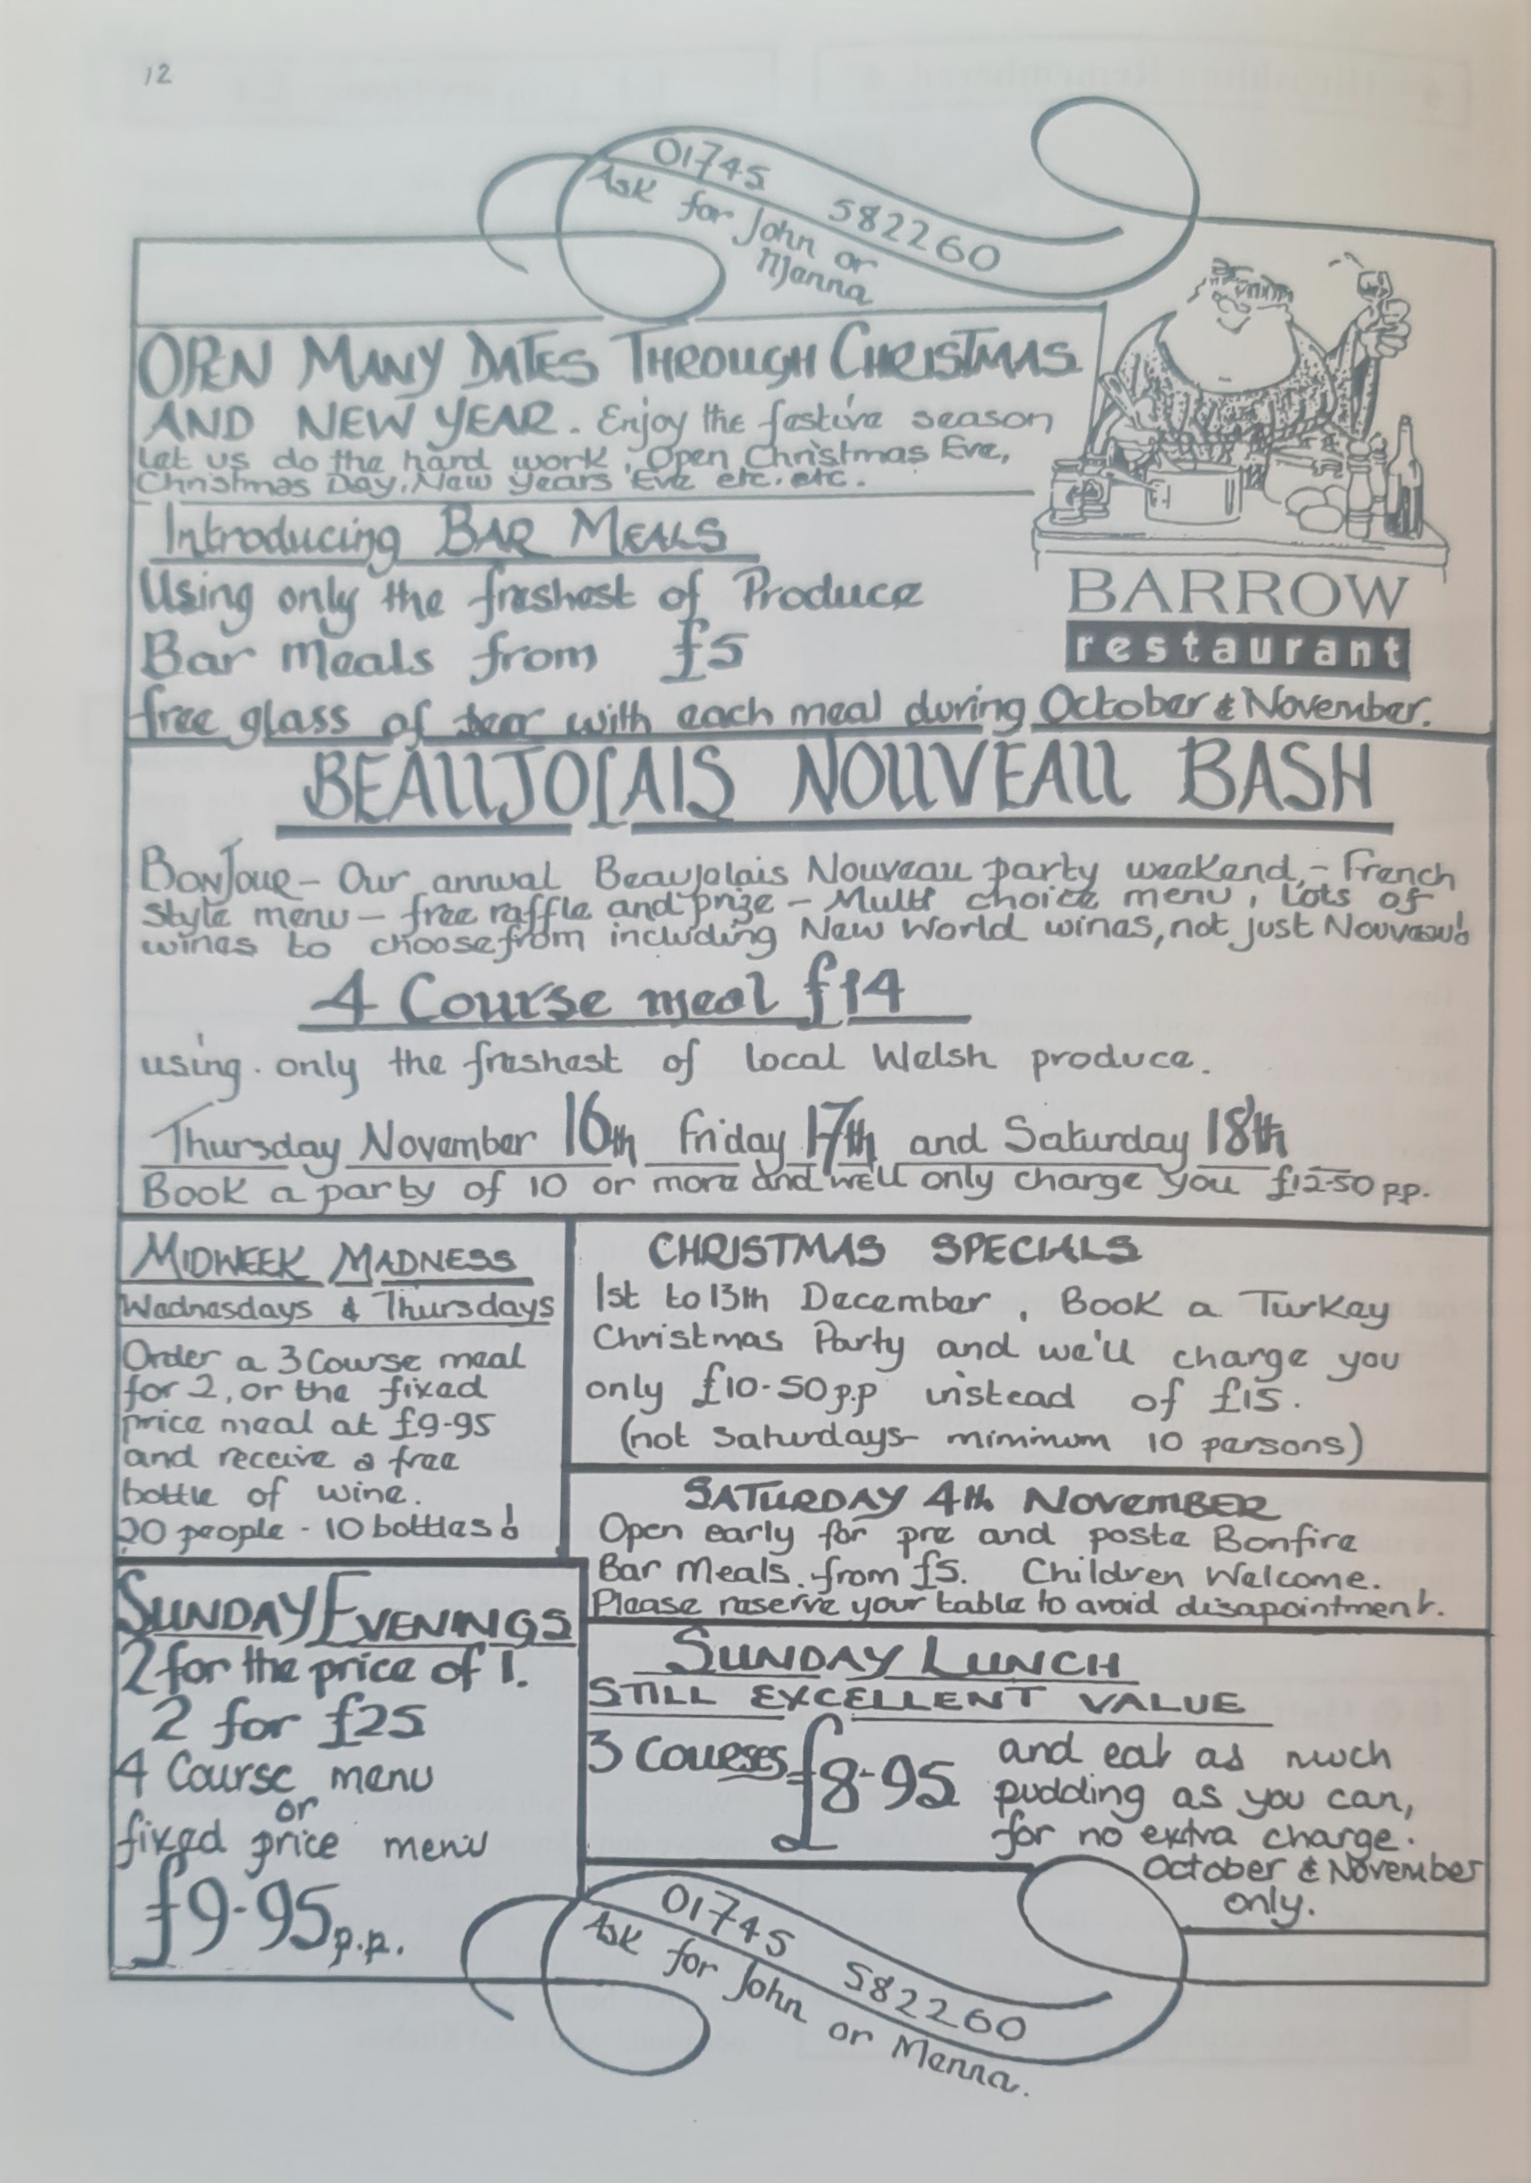 12
01745 582260
Ask for John or
Menna
OPEN MANY DATES THROUGH CHRISTMAS
AND NEW YEAR. Enjoy the festive season
Let us do the hard work, Open Christmas Eve,
Christmas Day, New Years Eve etc. etc.
Introducing BAR MEALS
Using only the freshest of Produce
Bar Meals from £5
free glass of beer with each meal during October & November.
BARROW
restaurant
BEAUJOLAIS NOUVEAU BASH
BONJOUR - Our annual Beaujolais Nouveau party weekend, - French
style menu - free raffle and prize - Multi choice menu, lots of
wines to choose from including New World wines, not just Nouveau!
4 Course meal £14
using only the freshest of local Welsh produce.
Thursday November 16th Friday 17th and Saturday 18th
Book a party of 10 or more and we'll only charge you £12-50 pp.
MIDWEEK MADNESS
Wednesdays & Thursdays
Order a 3 Course meal
for 2, or the fixed
price meal at £9-95
and receive a free
bottle of wine.
20 people - 10 bottles!
CHRISTMAS SPECIALS
1st to 13th December, Book a Turkey
Christmas Party and we'll charge you
only £10-50 p.p instead of £15.
(not Saturdays - minimum 10 persons)
SATURDAY 4th NOVEMBER
Open early for pre and poste Bonfire
Bar Meals from £5. Children Welcome.
Please reserve your table to avoid disapointment.
SUNDAY EVENINGS
2 for the price of 1.
2 for £25
4 Course menu
or
fixed price menu
£9-95 p.p.
SUNDAY LUNCH
STILL EXCELLENT VALUE
3 COURSES £8-95 and eat as much
pudding as you can,
for no extra charge.
October & November
only.
01745 582260
Ask for John or Menna.